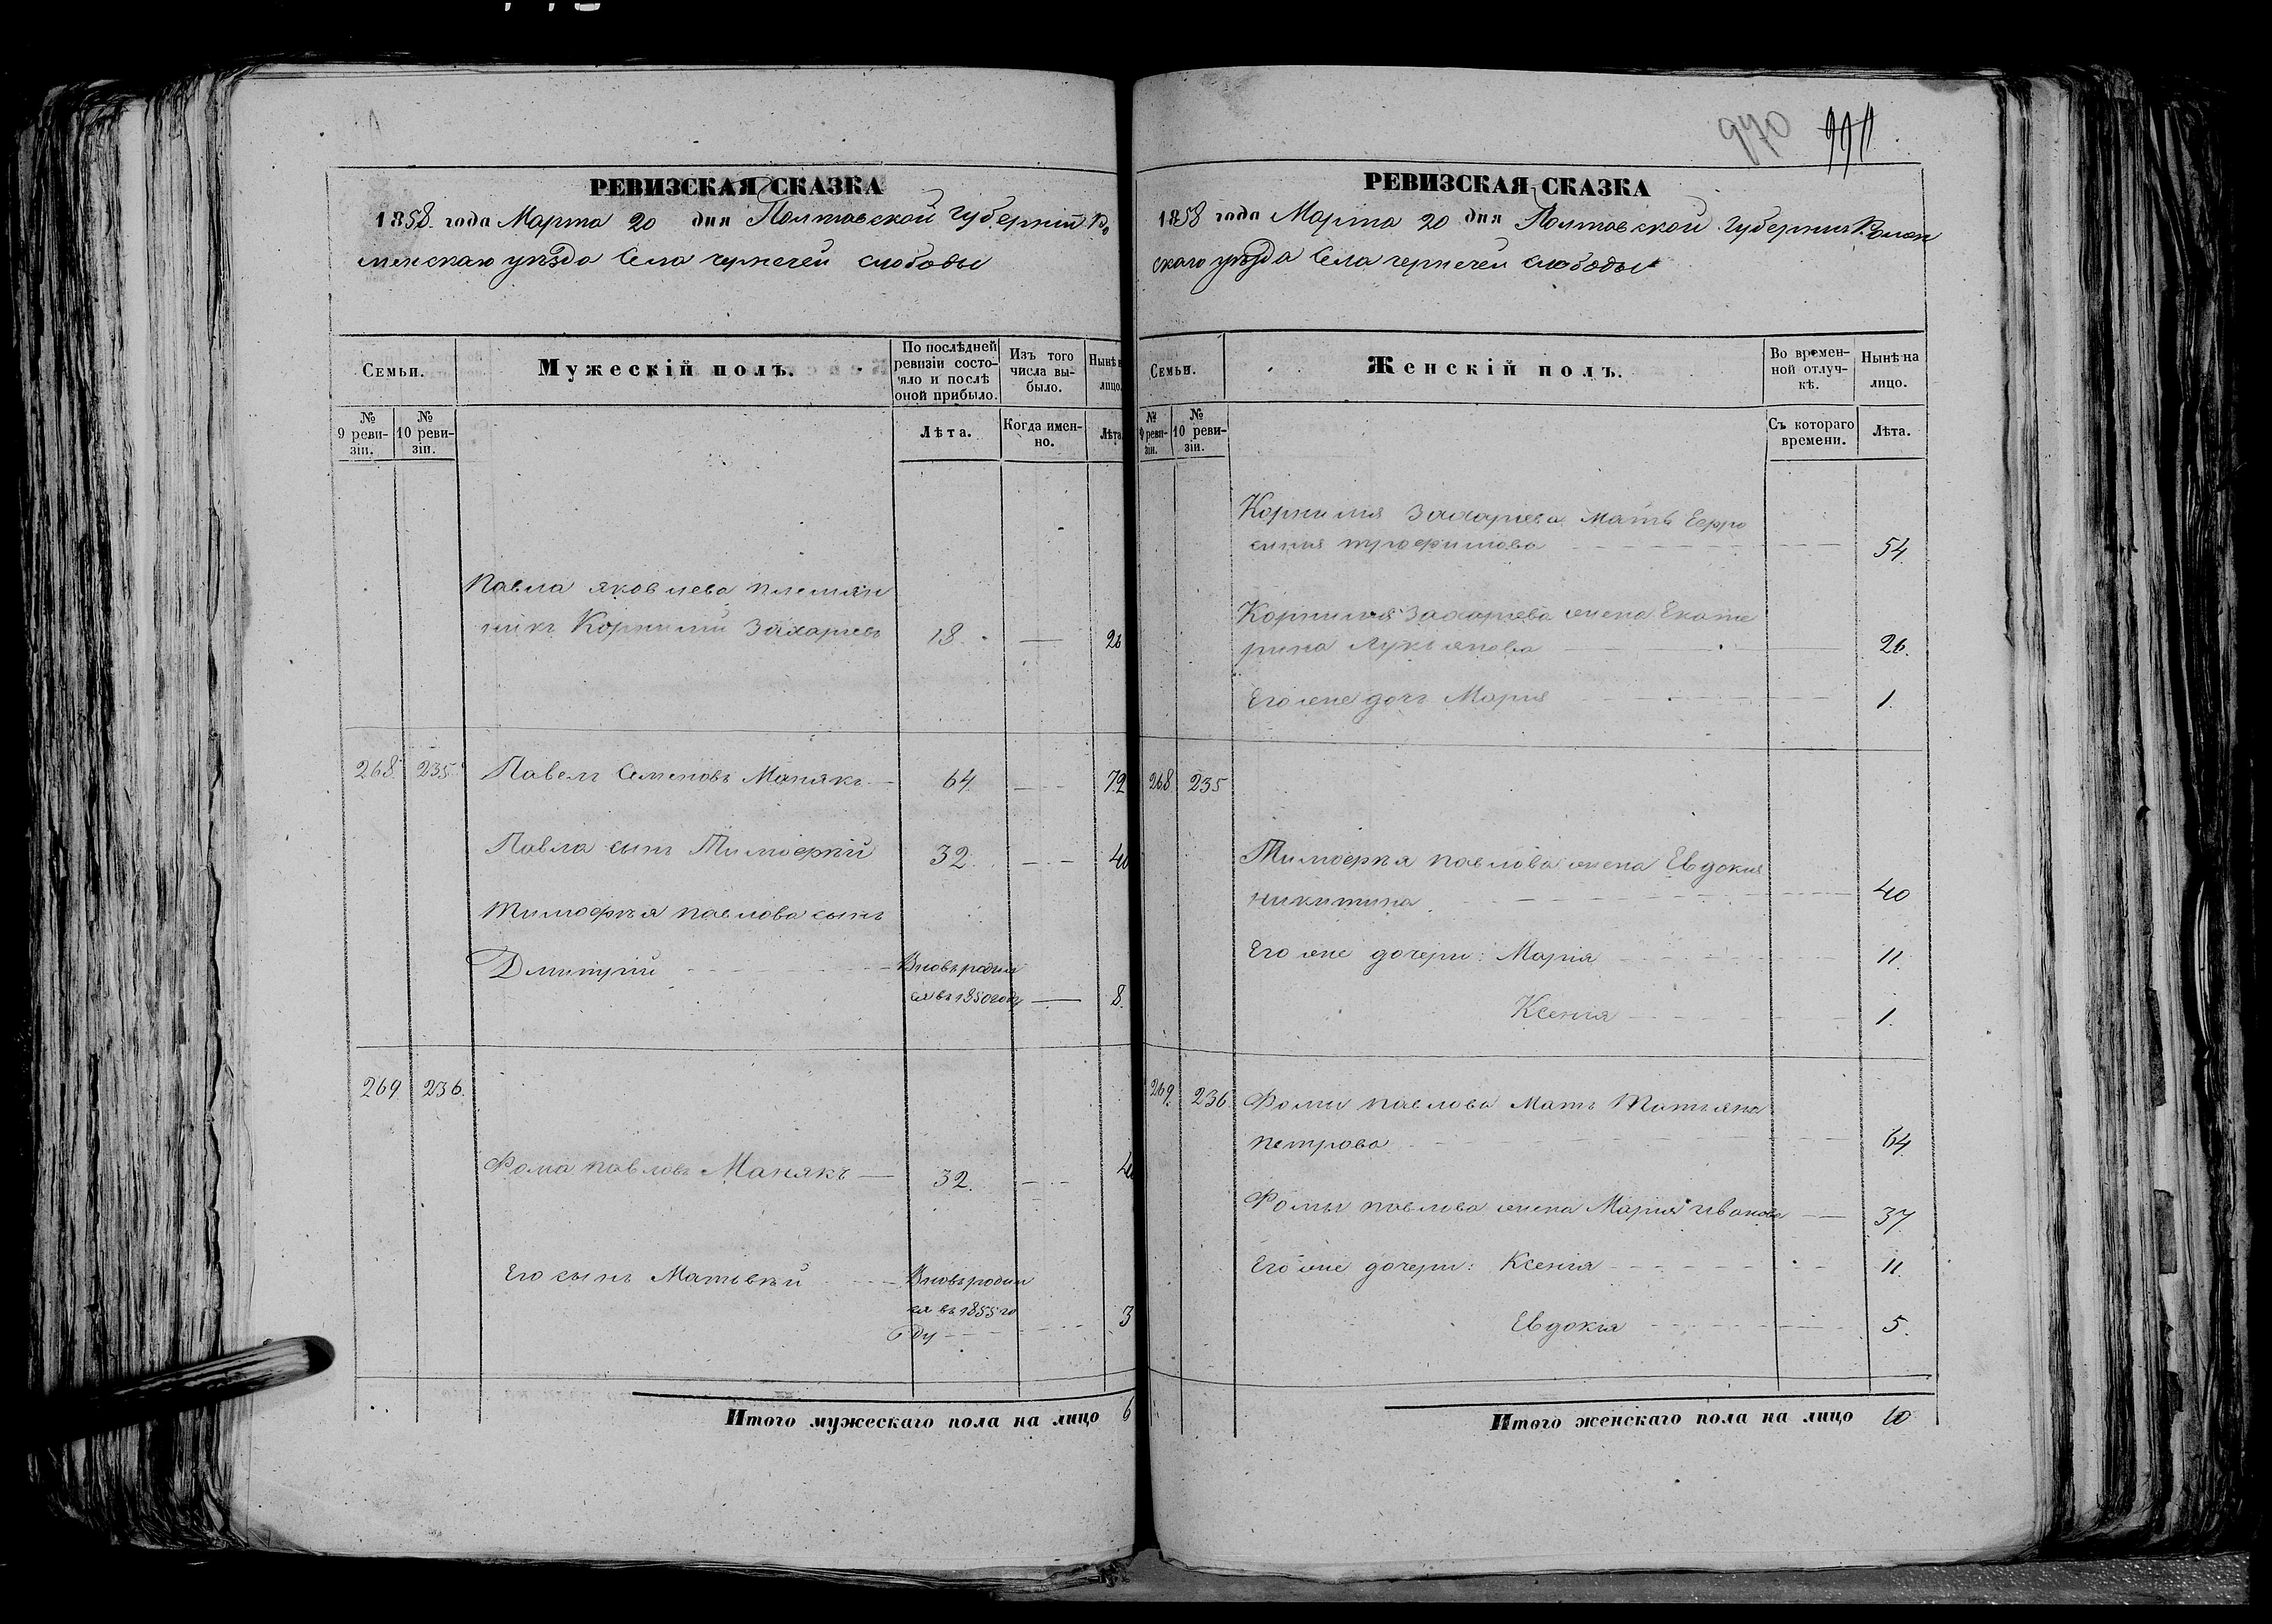 970
РЕВИЗСКАЯ СКАЗКА
1858 года Марта 20 дня Полтавской губерніи Ро
менскаго уѣзда Села чернечей слободы
Семьи.
Мужескій полъ.
По послѣдней ревизіи состояло и послѣ оной прибыло.
Изъ того числа выбыло.
Нынѣ н лицо.
№ 9 ревизіи.
№ 10 ревизіи.
Лѣта.
Когда именно.
Лѣта
Павла яковлева племян
никъ Корнилій Захарьевъ 18. — 26
268. 235. Павелъ Семеновъ Манякъ — 64. — 72
Павла сынъ Тимофѣй 32. — 40
Тимофѣя павлова сынъ
Дмитрій — Вновь родил
ся въ 1850 году — 8.
269 236.
Фома павловъ Манякъ — 32. — 40
Его сынъ Матвѣй — Вновь родил
ся въ 1855 го
ду — 3
Итого мужескаго пола на лицо 6
РЕВИЗСКАЯ СКАЗКА
1858 года Марта 20 дня Полтавской Губерніи Ромен
скаго уѣзда Села чернечей слободы
Семьи.
Женскій полъ.
Во временной отлучкѣ.
Нынѣ на лицо.
№ 9 ревизіи.
№ 10 ревизіи.
Съ котораго времени.
Лѣта.
Корнилія Захарьева мать Ефро
синія трофимова — 54.
Корнилія Захарьева жена Екате
рина Лукьянова — 26.
Его же дочь Марія — 1.
268 235
Тимофѣя павлова жена Евдокия
никитина — 40
Его же дочери: Марія — 11.
Ксенія — 1.
269. 236. Фомы павлова Мать Татьяна
петрова — 64
Фомы павлова жена Марія иванова — 37
Его же дочери: Ксенія — 11.
Евдокія — 5.
Итого женскаго пола на лицо 10